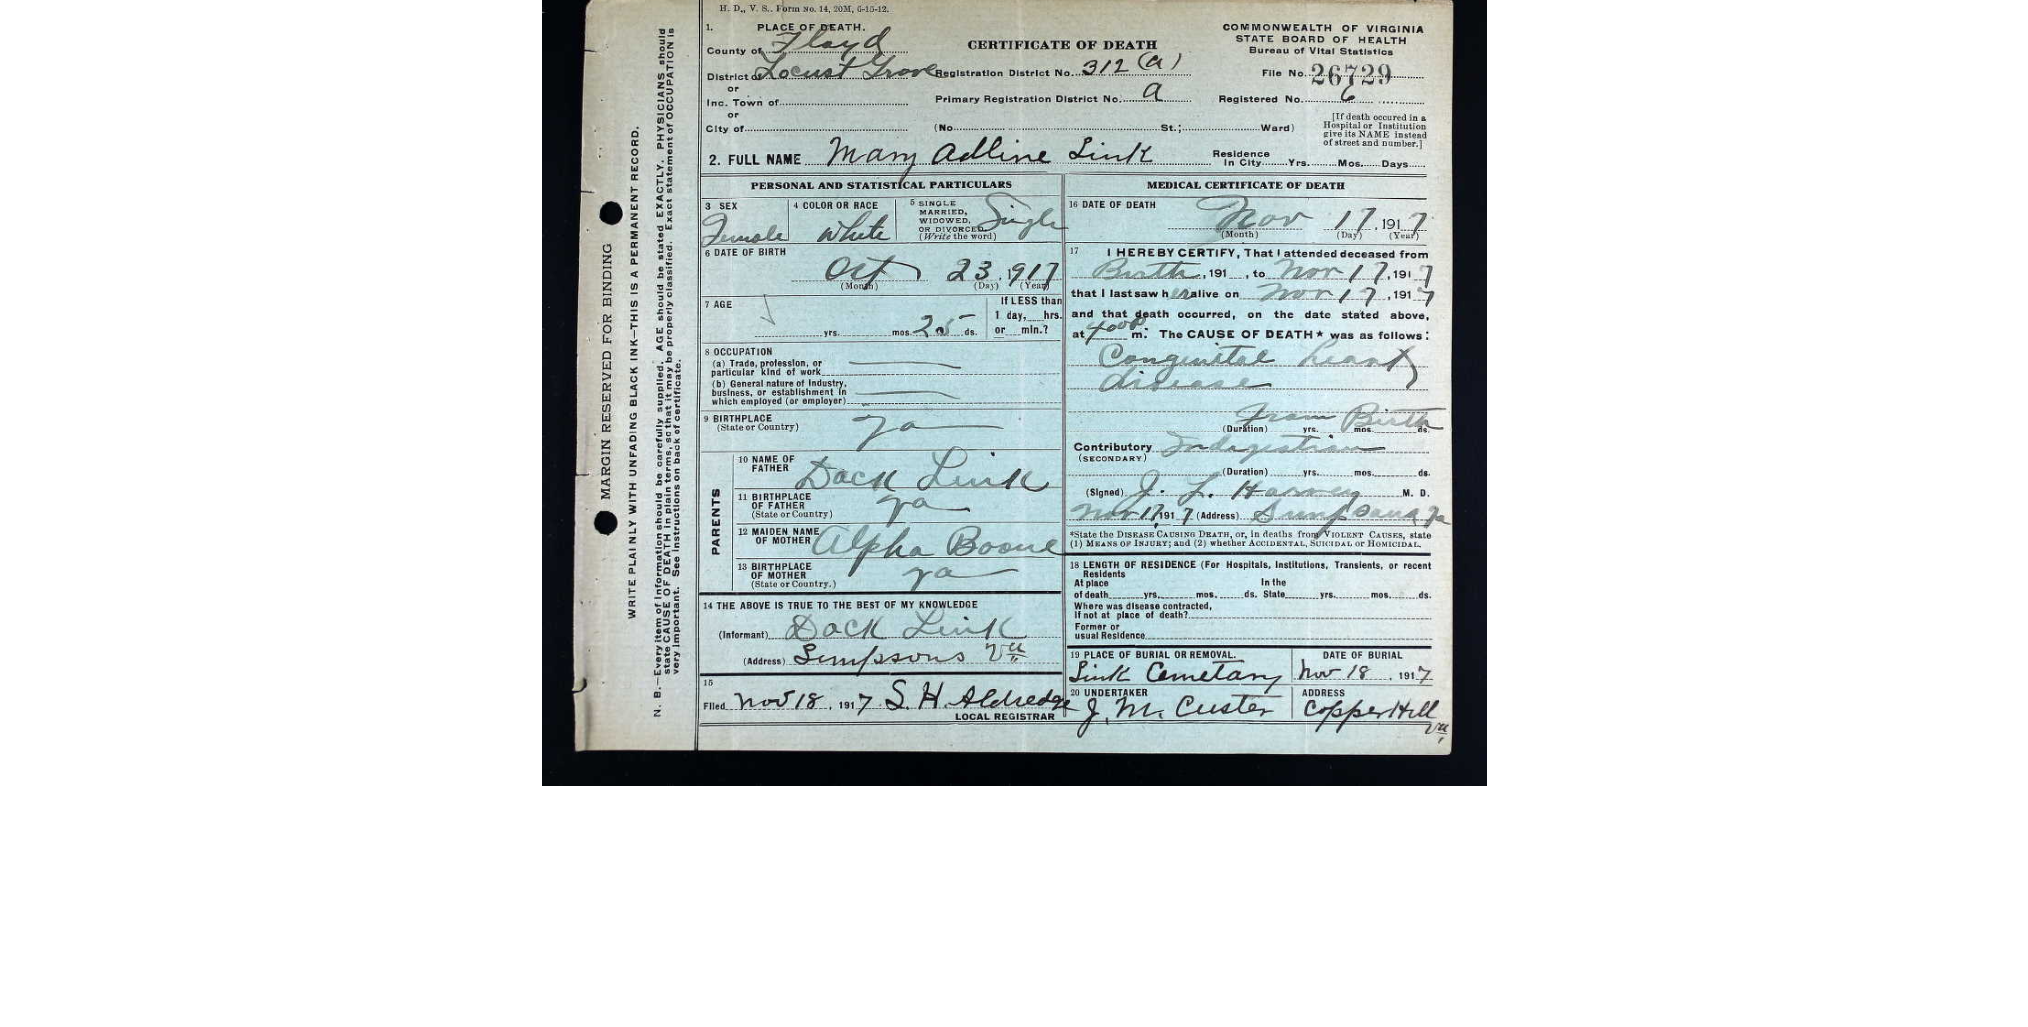 H. D., V. S.. Form No. 14, 20M, 6-15-12.
1. PLACE OF DEATH.
County of Floyd
District of Locust Grove
or
Inc. Town of
or
City of
CERTIFICATE OF DEATH
Registration District No. 312 (a)
Primary Registration District No. a
(No. St.; Ward)
COMMONWEALTH OF VIRGINIA
STATE BOARD OF HEALTH
Bureau of Vital Statistics
File No. 26729
Registered No. 6
[If death occured in a
Hospital or Institution
give its NAME instead
of street and number.]
2. FULL NAME Mary Adline Link
Residence
In City Yrs. Mos. Days
PERSONAL AND STATISTICAL PARTICULARS
3 SEX
Female
4 COLOR OR RACE
White
5 SINGLE
MARRIED,
WIDOWED,
OR DIVORCED
(Write the word)
Single
6 DATE OF BIRTH
Oct 23, 1917
(Month) (Day) (Year)
7 AGE
yrs. mos. 25 ds.
If LESS than
1 day, hrs.
or min.?
8 OCCUPATION
(a) Trade, profession, or
particular kind of work
(b) General nature of Industry,
business, or establishment in
which employed (or employer)
9 BIRTHPLACE
(State or Country) Va
PARENTS
10 NAME OF
FATHER Dack Link
11 BIRTHPLACE
OF FATHER
(State or Country) Va
12 MAIDEN NAME
OF MOTHER Alpha Boone
13 BIRTHPLACE
OF MOTHER
(State or Country.) Va
14 THE ABOVE IS TRUE TO THE BEST OF MY KNOWLEDGE
(Informant) Dack Link
(Address) Simpsons Va
15
Filed Nov 18, 1917 S. H. Aldredge
LOCAL REGISTRAR
MEDICAL CERTIFICATE OF DEATH
16 DATE OF DEATH
Nov 17, 1917
(Month) (Day) (Year)
17 I HEREBY CERTIFY, That I attended deceased from
Birth, 191 , to Nov 17, 1917
that I last saw her alive on Nov 17, 1917
and that death occurred, on the date stated above,
at 400P m. The CAUSE OF DEATH* was as follows:
Congenital heart
disease
From Birth
(Duration) yrs. mos. ds.
Contributory Indigestion
(SECONDARY)
(Duration) yrs. mos. ds.
(Signed) J. L. Harvey M. D.
Nov 17, 1917 (Address) Simpsons Va
*State the DISEASE CAUSING DEATH, or, in deaths from VIOLENT CAUSES, state
(1) MEANS OF INJURY; and (2) whether ACCIDENTAL, SUICIDAL or HOMICIDAL.
18 LENGTH OF RESIDENCE (For Hospitals, Institutions, Transients, or recent
Residents
At place In the
of death yrs. mos. ds. State yrs. mos. ds.
Where was disease contracted,
if not at place of death?
Former or
usual Residence
19 PLACE OF BURIAL OR REMOVAL.
Link Cemetary
DATE OF BURIAL
Nov 18, 1917
20 UNDERTAKER
J. M. Custer
ADDRESS
Copper Hill
Va
MARGIN RESERVED FOR BINDING
WRITE PLAINLY WITH UNFADING BLACK INK—THIS IS A PERMANENT RECORD.
N. B.—Every item of Information should be carefully supplied. AGE should be stated EXACTLY. PHYSICIANS should
state CAUSE OF DEATH in plain terms, so that it may be properly classified. Exact statement of OCCUPATION is
very Important. See instructions on back of certificate.